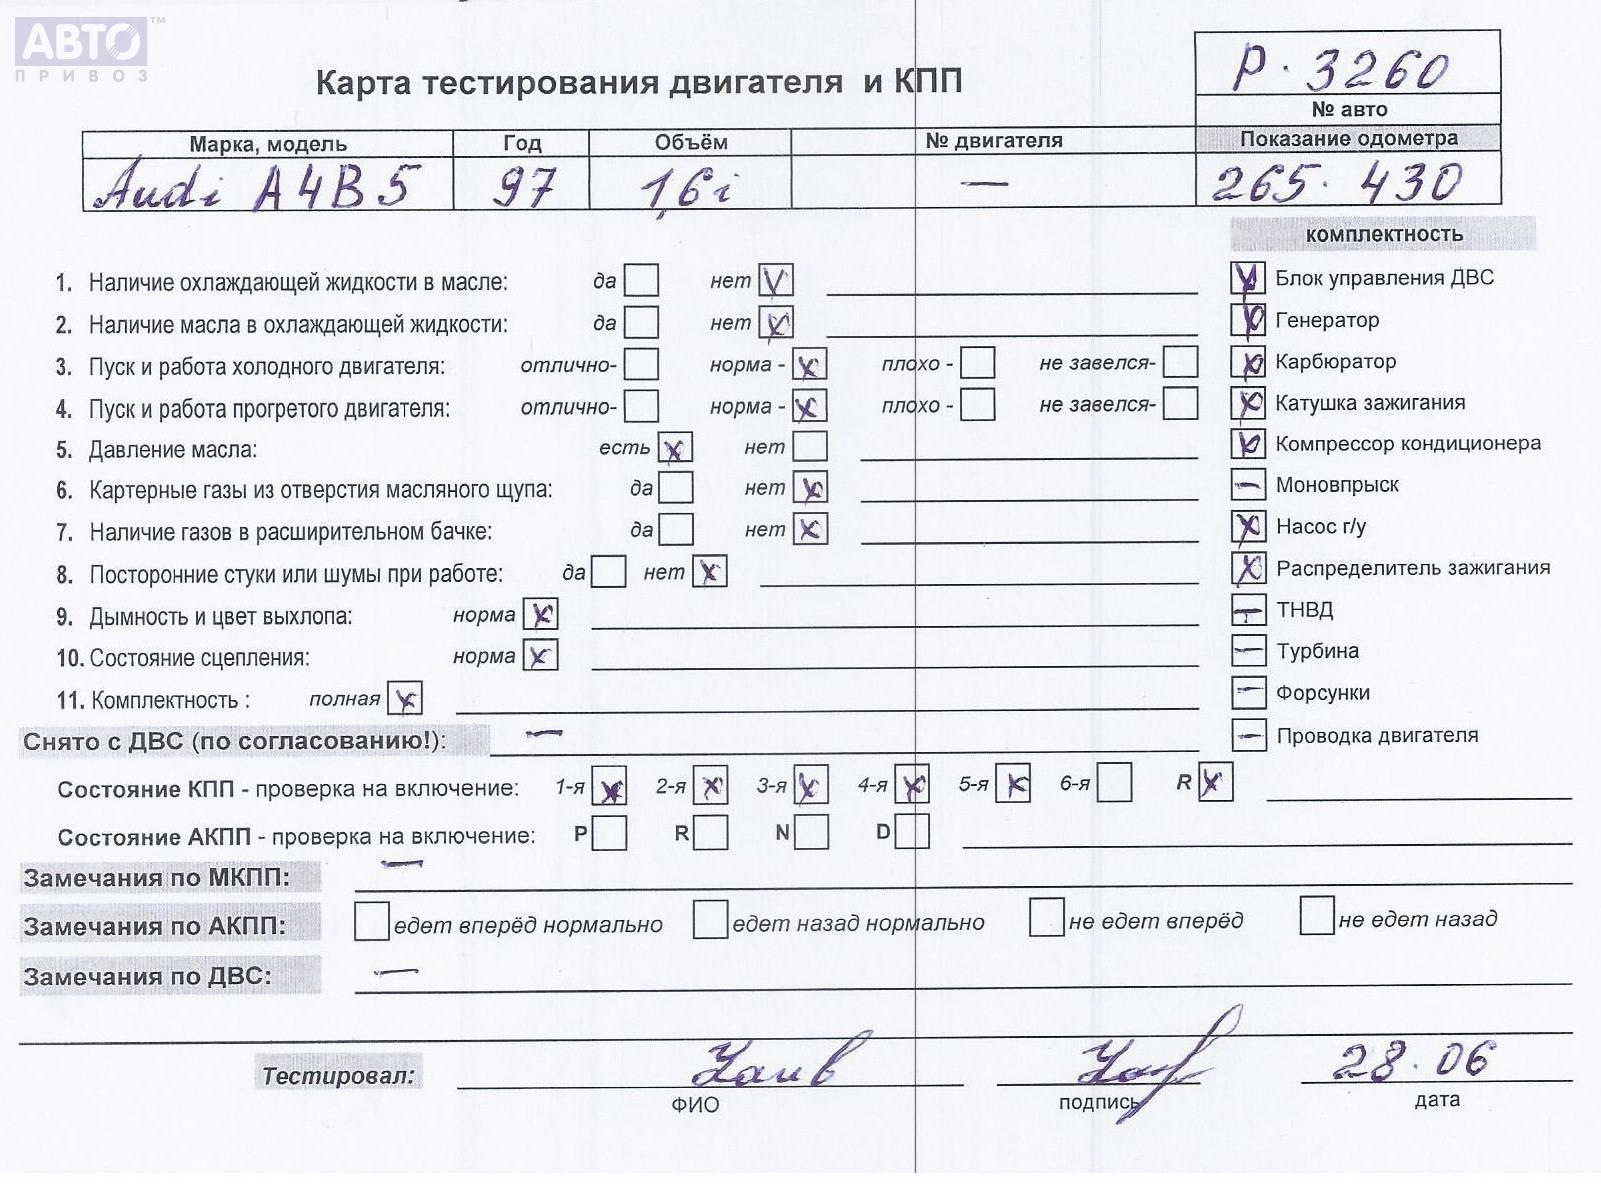 АВТО™
ПРИВОЗ
Р. 3260
Карта тестирования двигателя и КПП
№ авто
Марка, модель Год Объём № двигателя Показание одометра
Audi A4B5 97 1,6i — 265. 430
комплектность
1. Наличие охлаждающей жидкости в масле: да нет V
Блок управления ДВС
2. Наличие масла в охлаждающей жидкости: да нет
Генератор
3. Пуск и работа холодного двигателя: отлично- норма - плохо - не завелся-
Карбюратор
4. Пуск и работа прогретого двигателя: отлично- норма - плохо - не завелся-
Катушка зажигания
5. Давление масла: есть нет
Компрессор кондиционера
6. Картерные газы из отверстия масляного щупа: да нет
Моновпрыск
7. Наличие газов в расширительном бачке: да нет
Насос г/у
8. Посторонние стуки или шумы при работе: да нет
Распределитель зажигания
9. Дымность и цвет выхлопа: норма
ТНВД
10. Состояние сцепления: норма
Турбина
11. Комплектность : полная
Форсунки
Снято с ДВС (по согласованию!): —
Проводка двигателя
Состояние КПП - проверка на включение: 1-я 2-я 3-я 4-я 5-я 6-я R
Состояние АКПП - проверка на включение: P R N D
Замечания по МКПП: —
Замечания по АКПП: едет вперёд нормально едет назад нормально не едет вперёд не едет назад
Замечания по ДВС: —
Тестировал: 28.06
ФИО подпись дата